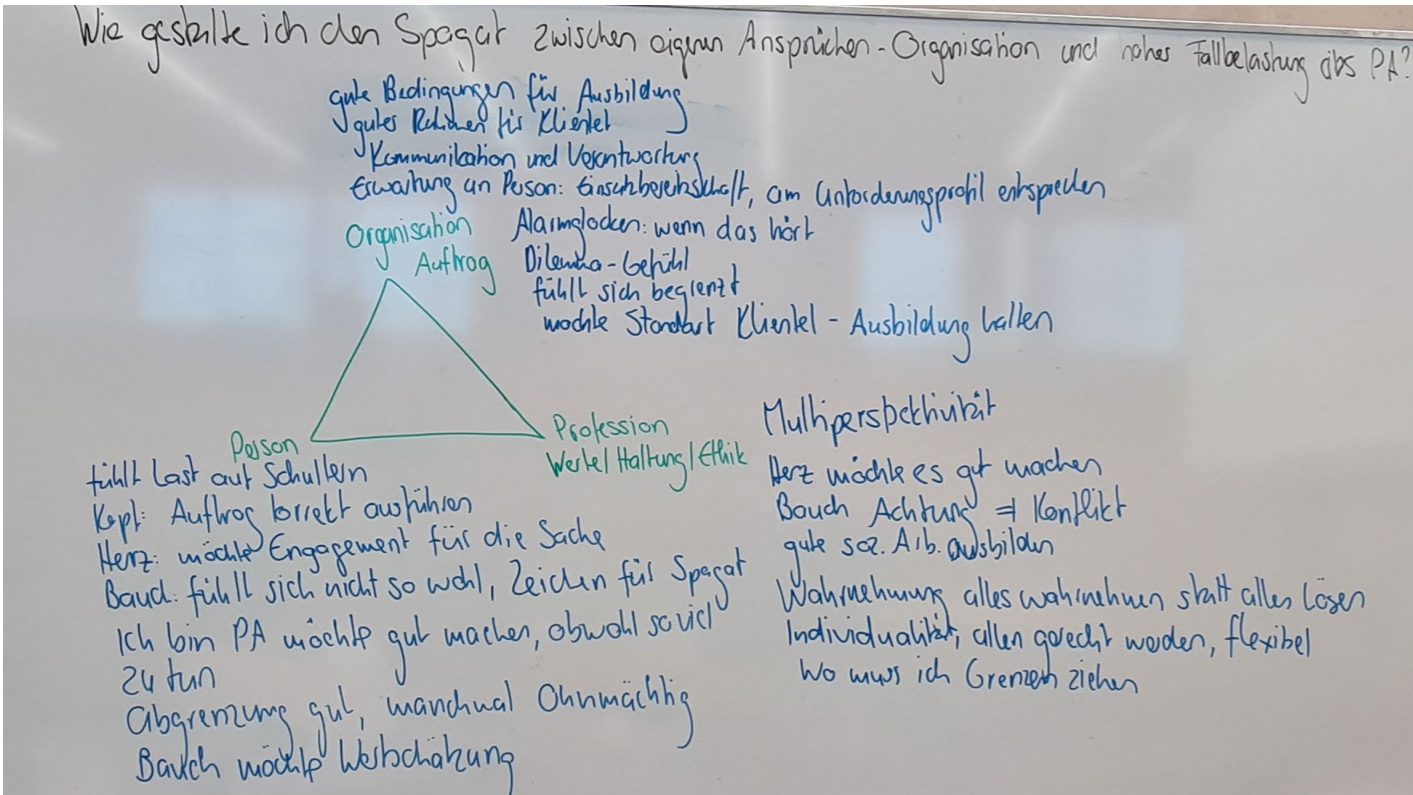 Wie gestalte ich den Spagat zwischen eigenen Ansprüchen - Organisation und hoher Fallbelastung als PA?
gute Bedingungen für Ausbildung
gutes Rahmen für Klientel
Kommunikation und Verantwortung
Erwartung an Person: Einsatzbereitschaft, am Anforderungsprofil entsprechen
Organisation
Auftrag
Alarmglocken: wenn das hört
Dilemma-Gefühl
fühlt sich begrenzt
möchte Standart Klientel - Ausbildung halten
Person
Profession
Werte/Haltung/Ethik
fühlt Last auf Schultern
Kopf: Auftrag korrekt ausführen
Herz: möchte Engagement für die Sache
Bauch: fühlt sich nicht so wohl, Zeichen für Spagat
Ich bin PA möchte gut machen, obwohl so viel
zu tun
Abgrenzung gut, manchmal Ohnmächtig
Bauch möchte Wertschätzung
Multiperspektivität
Herz möchte es gut machen
Bauch Achtung ⇒ Konflikt
gute soz. Arb. ausbilden
Wahrnehmung alles wahrnehmen statt alles lösen
Individualität, allen gerecht werden, flexibel
Wo muss ich Grenzen ziehen